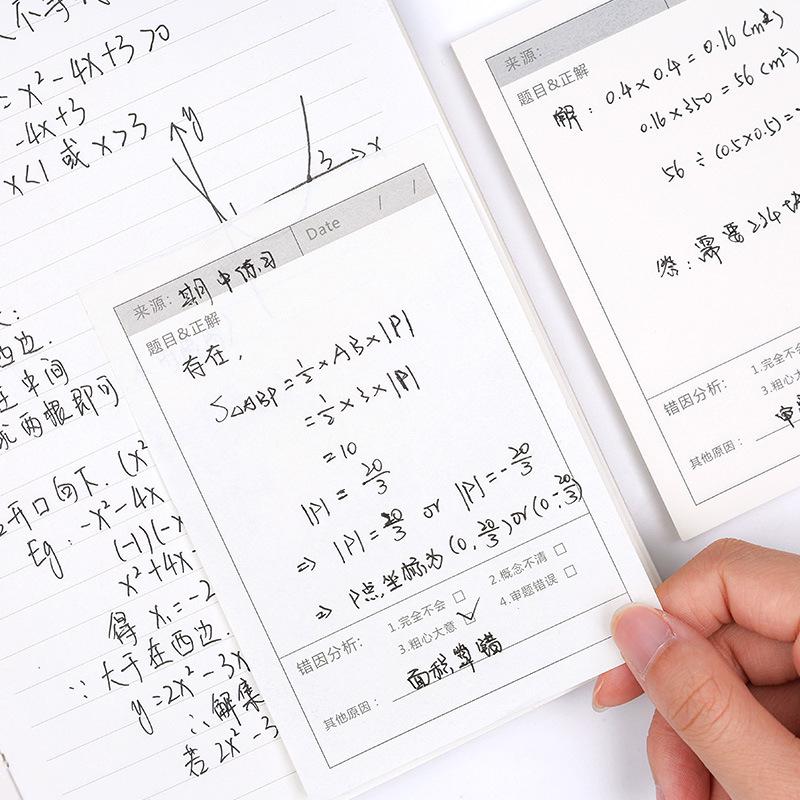 = x² - 4x + 3 > 0
-4x+3
x<1 或 x>3
y
3
x
西边.
中间
两根即可
开口向下. (x²
Eg: -x² - 4x
(-1)(-x
x²+4x-
得 x₁ = -2
∵ 大于在西边.
y = 2x² - 3x
∴ 解集
若 2x² - 3
来源: 期中练习
Date / /
题目&正解
存在,
S△ABP = ½ × AB × |P|
= ½ × 3 × |P|
= 10
|P| = 20/3
⇒ |P| = 20/3 or |P| = -20/3
⇒ P点坐标为 (0, 20/3) or (0 -20/3)
错因分析:
1.完全不会 □
2.概念不清 □
3.粗心大意 ✓
4.审题错误 □
其他原因: 面积算错
来源:
题目&正解
解: 0.4 × 0.4 = 0.16 (m²)
0.16 × 350 = 56 (m²)
56 ÷ (0.5×0.5) =
答: 需要224块
错因分析:
1.完全不
3.粗心大
其他原因: 审